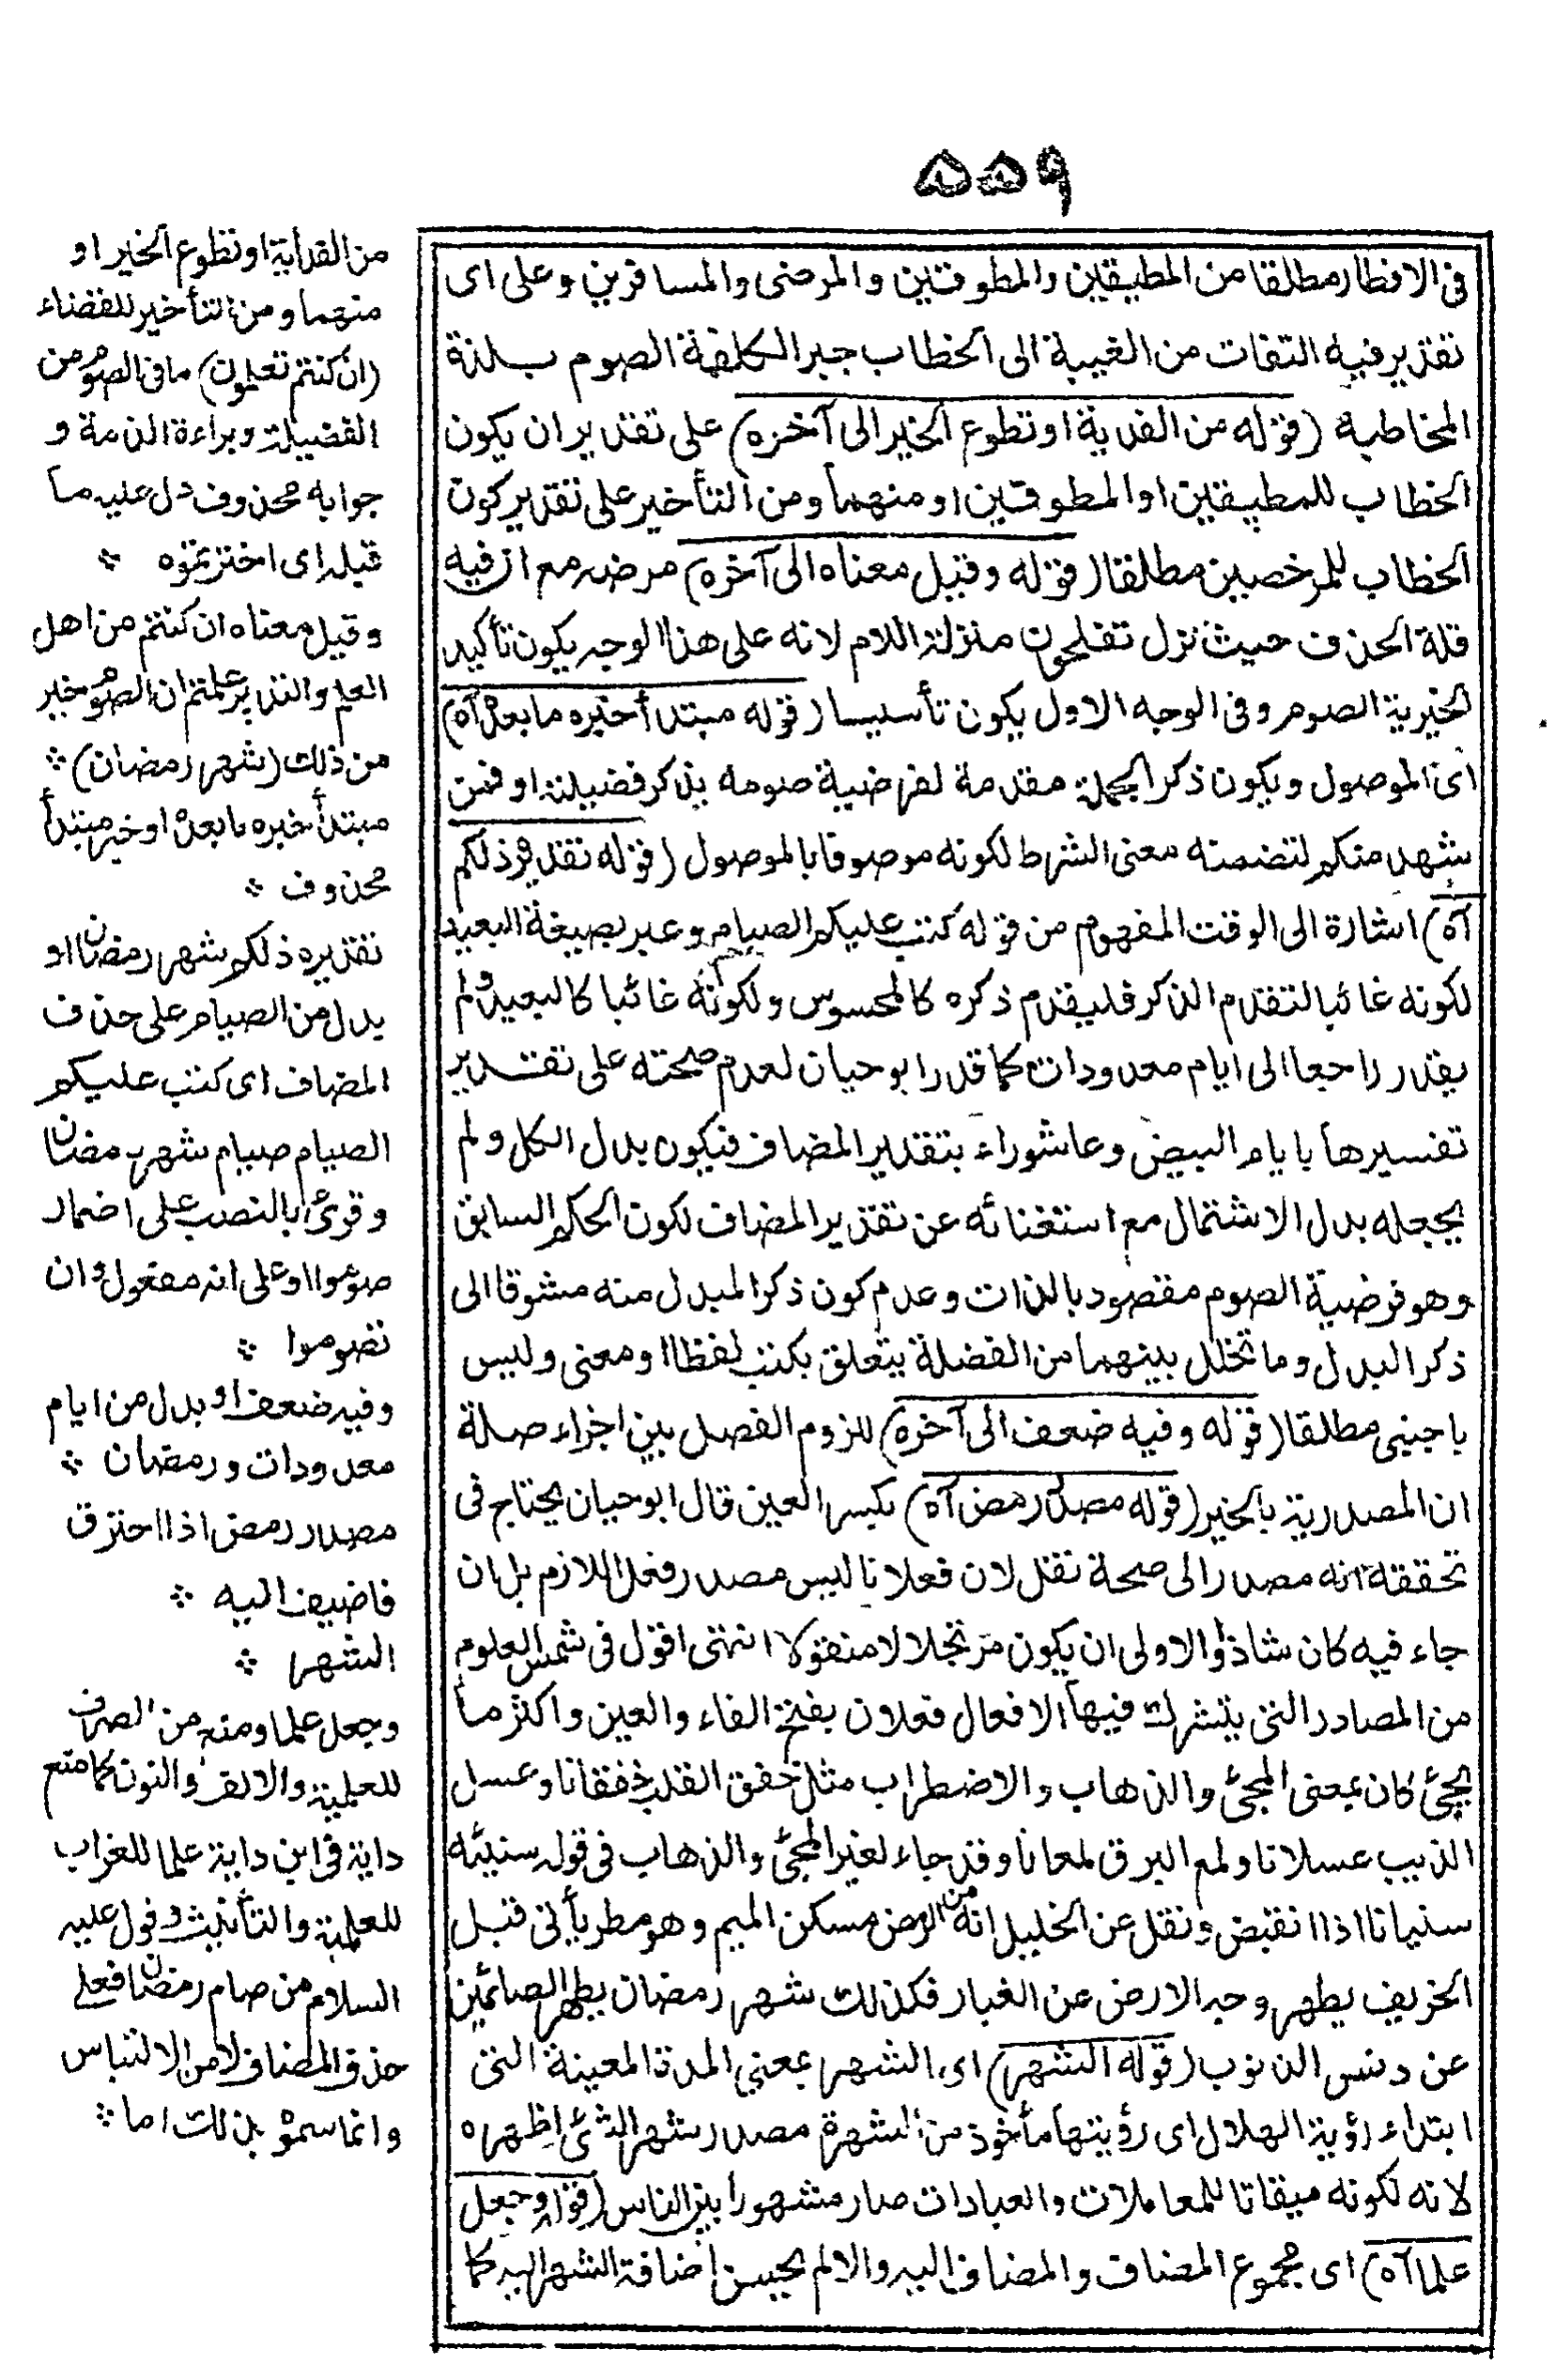 ٥٥٩
فى الافطار مطلقا من المطيقين والمطوقين والمرضى والمسافرين وعلى اى
تقدير فيه التفات من الغيبة الى الخطاب جبر الكلفة الصوم بلذة
المخاطبة (قوله من الفدية او تطوع الخير الى آخره) على تقدير ان يكون
الخطاب للمطيقين او المطوقين او منهما ومن التأخير على تقدير كون
الخطاب للمرخصين مطلقا (قوله وقيل معناه الى آخره) مرضه مع ان فيه
قلة الحذف حيث نزل تفلحون منزلة اللام لانه على هذا الوجه يكون تأكيد
لخيرية الصوم وفى الوجه الاول يكون تأسيسا (قوله مبتدأ خبره ما بعده آه)
اى الموصول ويكون ذكر الجملة مقدمة لفرضية صومه بذكر فضيلته او فمن
شهد منكم لتضمنه معنى الشرط لكونه موصوفا بالموصول (قوله تقديره ذلكم
آه) اشارة الى الوقت المفهوم من قوله كتب عليكم الصيام وعبر بصيغة البعيد
لكونه غائبا لتقدم الذكر فليقدم ذكره كالمحسوس ولكونه غائبا كالبعيد ولم
يقدر راجعا الى ايام معدودات كما قدر ابو حيان لعدم صحته على تقدير
تفسيرها بايام البيض وعاشوراء بتقدير المضاف فيكون بدل الكل ولم
يجعله بدل الاشتمال مع استغنائه عن تقدير المضاف لكون الحكم السابق
وهو فرضية الصوم مقصود بالذات وعدم كون ذكر المبدل منه مشوقا الى
ذكر البدل وما تخلل بينهما من الفضلة يتعلق بكتب لفظا او معنى وليس
باجنبى مطلقا (قوله وفيه ضعف الى آخره) للزوم الفصل بين اجزاء صلة
ان المصدرية بالخبر (قوله مصدر رمض آه) بكسر العين قال ابو حيان يحتاج فى
تحققه انه مصدر الى صحة نقل لان فعلانا ليس مصدر فعل اللازم بل ان
جاء فيه كان شاذا والاولى ان يكون مرتجلا لا منقولا انتهى اقول فى شمس العلوم
من المصادر التى يتشرك فيها الافعال فعلان بفتح الفاء والعين واكثر ما
يجئ كان بمعنى المجئ والذهاب والاضطراب مثل خفق القلب خفقانا وعسل
الذيب عسلانا ولمع البرق لمعانا وقد جاء لغير المجئ والذهاب فى قوله سنيئه
سنيانا اذا انقبض ونقل عن الخليل انه من الرمض مسكن الميم وهو مطر يأتى قبل
الخريف يطهر وجه الارض عن الغبار فكذلك شهر رمضان يطهر الصائمين
عن دنس الذنوب (قوله الشهر) اى الشهر بمعنى المدة المعينة التى
ابتداء رؤية الهلال اى رؤيتها مأخوذ من الشهرة مصدر شهر الشئ اظهره
لانه لكونه ميقاتا للمعاملات والعبادات صار مشهورا بين الناس (قوله وجعل
علما آه) اى مجموع المضاف والمضاف اليه والا لم يحسن اضافة الشهر اليه كما
من الفدية او تطوع الخير او
منهما ومن التأخير للقضاء
(ان كنتم تعلمون) ما فى الصوم من
الفضيلة وبراءة الذمة و
جوابه محذوف دل عليه ما
قبله اى اخترتموه ❖
وقيل معناه ان كنتم من اهل
العلم والتدبر علمتم ان الصوم خير
من ذلك (شهر رمضان) ❖
مبتدأ خبره ما بعده او خبر مبتدأ
محذوف ❖
تقديره ذلكم شهر رمضان او
بدل من الصيام على حذف
المضاف اى كتب عليكم
الصيام صيام شهر رمضان
وقرئ بالنصب على اضمار
صوموا او على انه مفعول وان
تصوموا ❖
وفيه ضعف او بدل من ايام
معدودات ورمضان ❖
مصدر رمض اذا احترق
فاضيف اليه ❖
الشهر ❖
وجعل علما ومنع من الصرف
للعلمية والالف والنون كما منع
داية فى ابن داية علما للغراب
للعلمية والتأنيث وقول عليه
السلام من صام رمضان فعلى
حذف المضاف لامن الالتباس
وانما سموه بذلك اما ❖